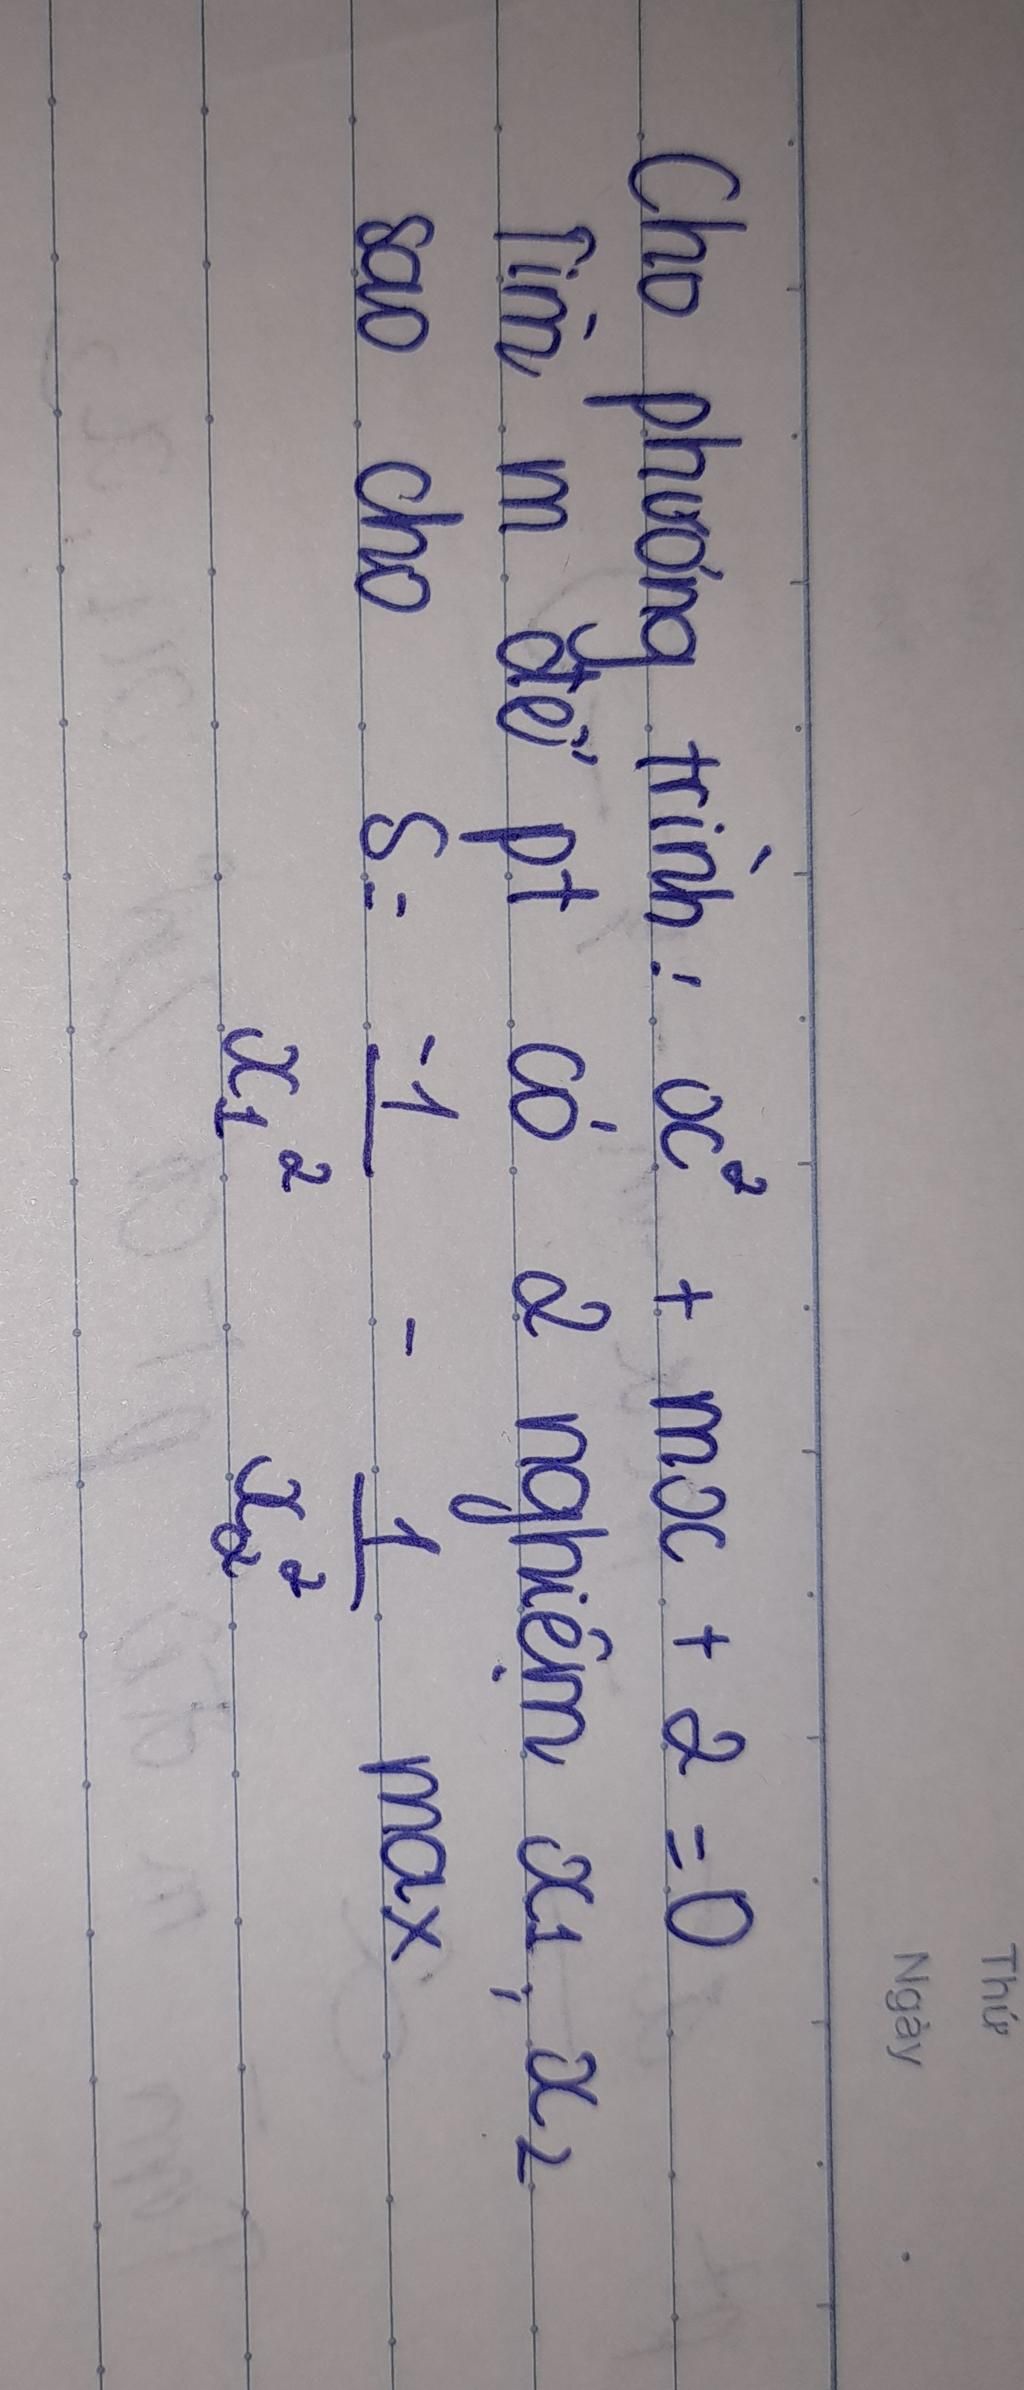 Thứ
Ngày
Cho phương trình: x² + mx + 2 = 0
Tìm m để pt có 2 nghiệm x₁, x₂
sao cho S = -1/x₁² - 1/x₂² max